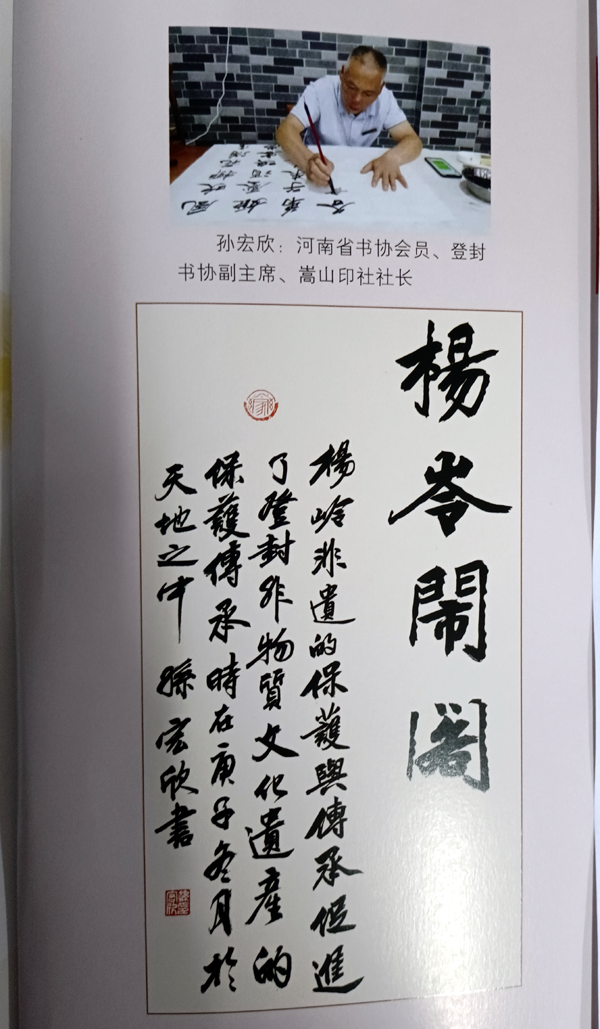 孙宏欣：河南省书协会员、登封
书协副主席、嵩山印社社长
楊岺閙閣
楊岭非遺的保護與傳承促進
了登封非物質文化遺產的
保護傳承時在庚子冬月於
天地之中 孫宏欣書